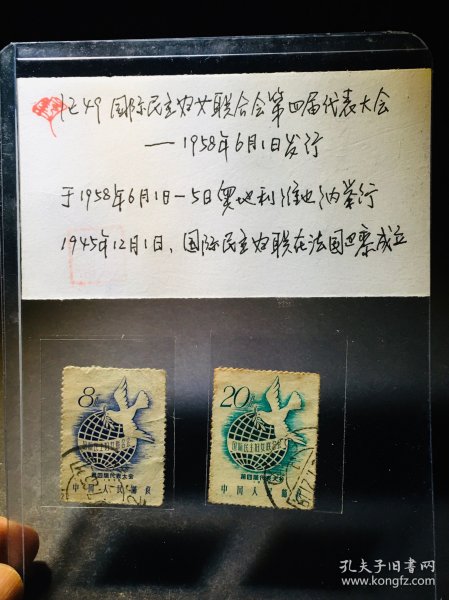 纪49 国际民主妇女联合会第四届代表大会
——1958年6月1日发行
于1958年6月1日-5日奥地利维也纳举行
1945年12月1日、国际民主妇联在法国巴黎成立
8
第四届代表大会
中国人民邮政
20
国际民主妇女联合会
第四届代表大会
中国人 邮
孔夫子旧书网
www.kongfz.com